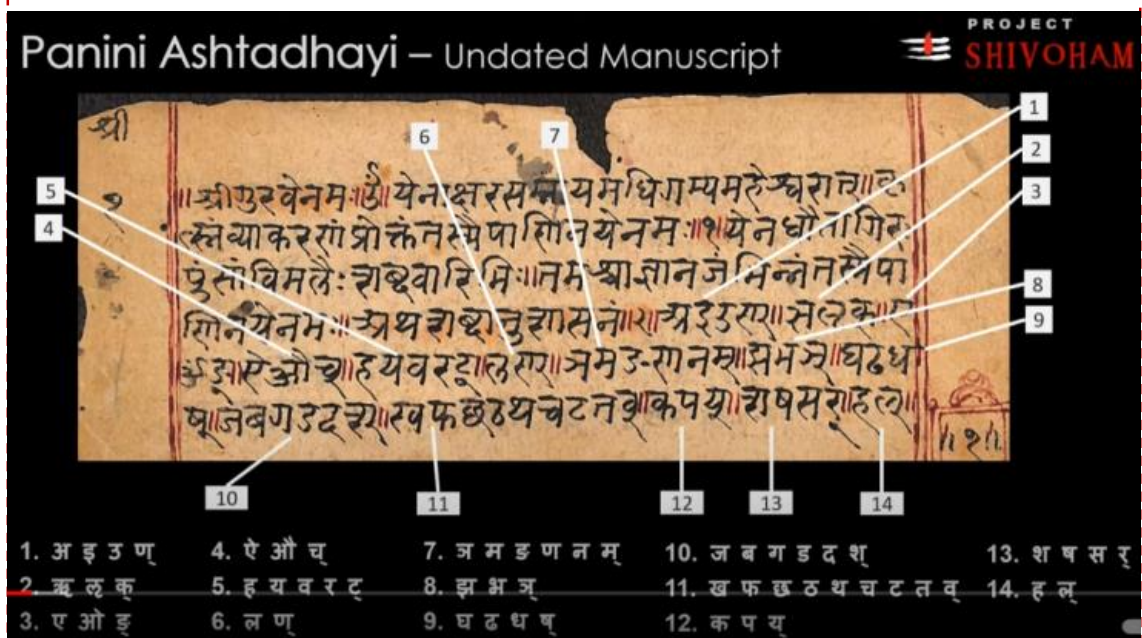 Panini Ashtadhayi – Undated Manuscript
PROJECT
SHIVOHAM
श्री
१
॥श्रीगुरवेनमः॥ॐ॥येनाक्षरसमाम्नायमधिगम्यमहेश्वरात्॥कृ
त्स्नंव्याकरणंप्रोक्तंतस्मैपाणिनयेनमः॥१॥येनधौतागिरः
पुंसांविमलैःशब्दवारिभिः॥तमश्चाज्ञानजंभिन्नंतस्मैपा
णिनयेनमः॥अथशब्दानुशासनं॥२॥अइउण्॥ऋलृक्॥ए
ओङ्॥ऐऔच्॥हयवरट्॥लण्॥ञमङणनम्॥झभञ्॥घढध
ष्॥जबगडदश्॥खफछठथचटतव्॥कपय्॥शषसर्॥हल्॥
॥१॥
1
2
3
4
5
6
7
8
9
10
11
12
13
14
1. अ इ उ ण्
2. ऋ लृ क्
3. ए ओ ङ्
4. ऐ औ च्
5. ह य व र ट्
6. ल ण्
7. ञ म ङ ण न म्
8. झ भ ञ्
9. घ ढ ध ष्
10. ज ब ग ड द श्
11. ख फ छ ठ थ च ट त व्
12. क प य्
13. श ष स र्
14. ह ल्